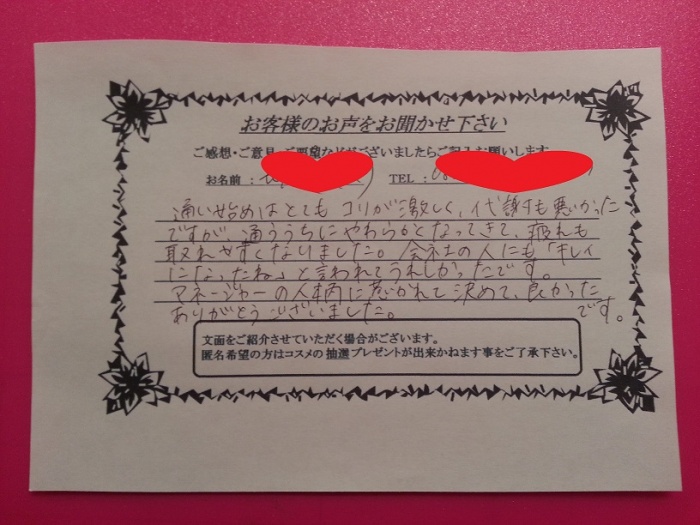 お客様のお声をお聞かせ下さい
ご感想・ご意見・ご要望などがございましたらご記入お願いします
お名前： TEL：
通い始めはとてもコリが激しく、代謝も悪かった
ですが、通ううちにやわらかくなってきて、疲れも
取れやすくなりました。会社の人にも「キレイ
になったね」と言われてうれしかったです。
マネージャーの人柄に惹かれて決めて、良かった
です。
ありがとうございました。
文面をご紹介させていただく場合がございます。
匿名希望の方はコスメの抽選プレゼントが出来かねます事をご了承下さい。